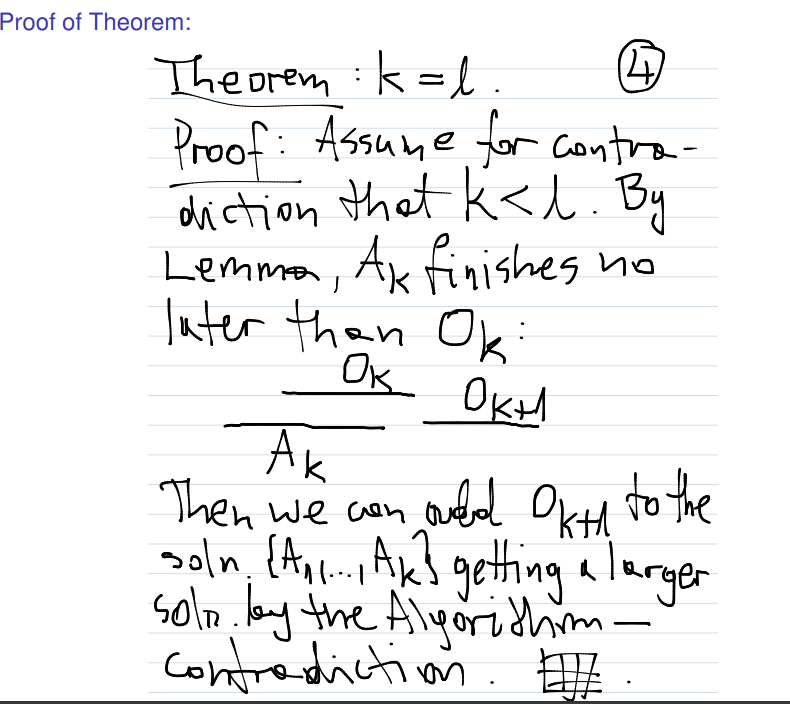 Proof of Theorem:
Theorem : k = l . ④
Proof: Assume for contra-
diction that k < l. By
Lemma, Aₖ finishes no
later than Oₖ:
Oₖ
Oₖ₊₁
Aₖ
Then we can add Oₖ₊₁ to the
soln. {A₁,..., Aₖ} getting a larger
soln. by the Algorithm —
contradiction.